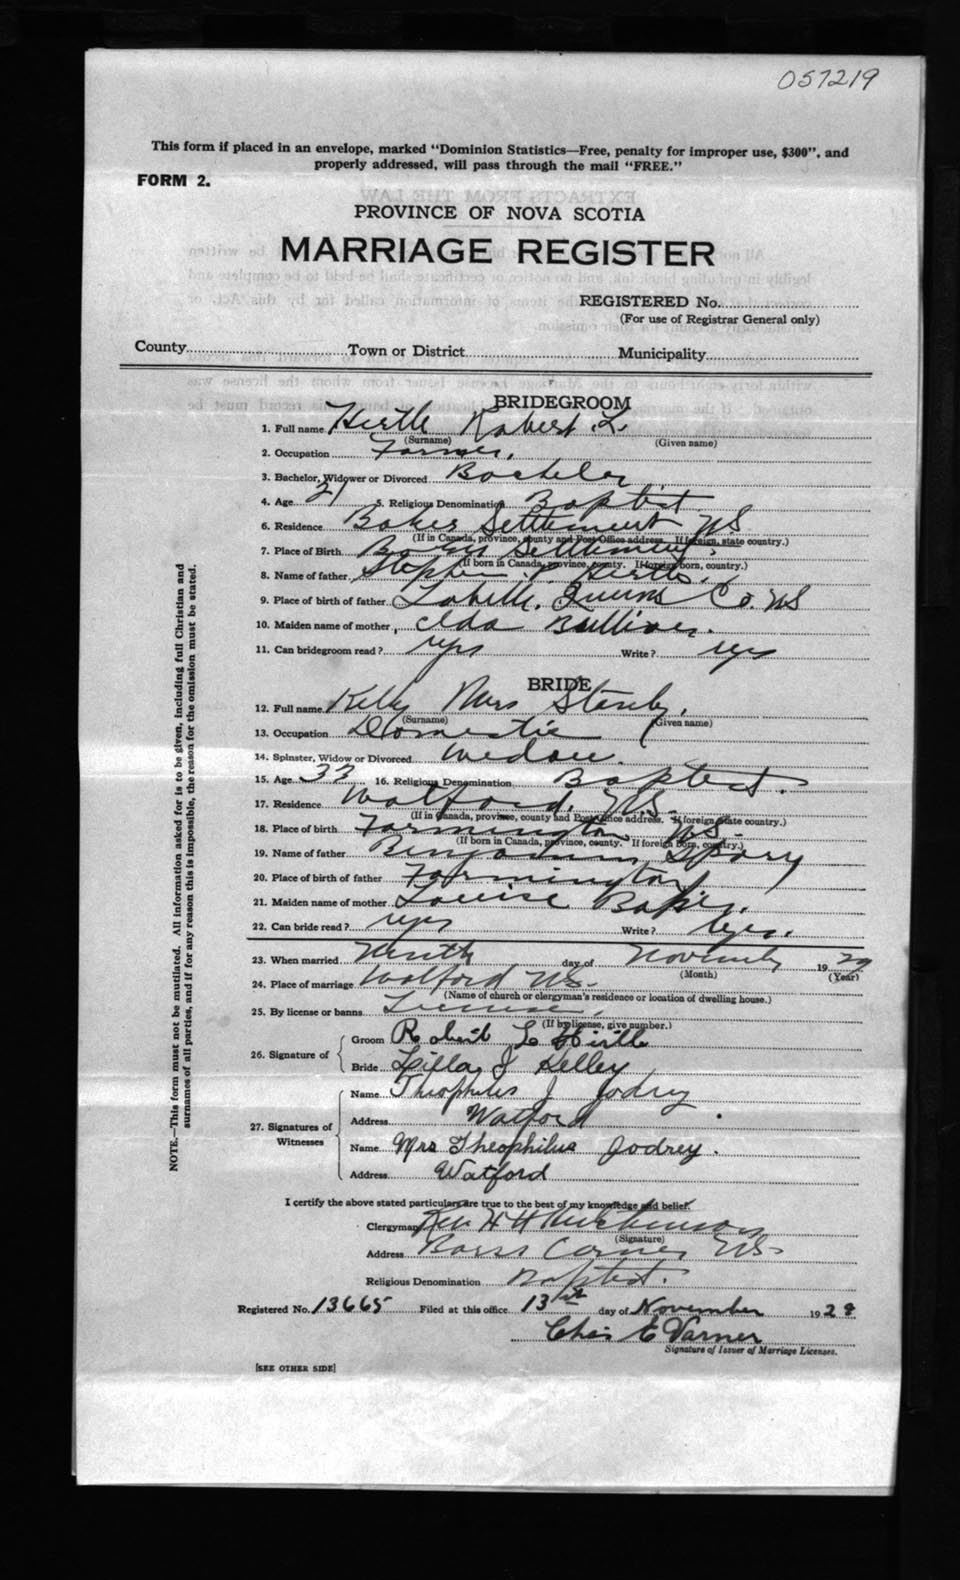 057219
This form if placed in an envelope, marked "Dominion Statistics—Free, penalty for improper use, $300", and
properly addressed, will pass through the mail "FREE."
FORM 2.
PROVINCE OF NOVA SCOTIA
MARRIAGE REGISTER
REGISTERED No.
(For use of Registrar General only)
County Town or District Municipality
BRIDEGROOM
1. Full name Hirtle Robert L.
(Surname) (Given name)
2. Occupation Farmer.
3. Bachelor, Widower or Divorced Bachelor
4. Age 21 5. Religious Denomination Baptist
6. Residence Baker Settlement NS
(If in Canada, province, county and Post Office address. If foreign, state country.)
7. Place of Birth Baker Settlement
(If born in Canada, province, county. If foreign born, country.)
8. Name of father Stephen Hirtle
9. Place of birth of father Labelle, Queens Co. NS
10. Maiden name of mother Ida
11. Can bridegroom read? yes Write? yes
BRIDE
12. Full name Kelly Mrs
(Surname) (Given name)
13. Occupation Domestic
14. Spinster, Widow or Divorced Widow.
15. Age 33 16. Religious Denomination Baptist.
17. Residence Watford. NS.
(If in Canada, province, county and Post Office address. If foreign state country.)
18. Place of birth Farmington NS.
(If born in Canada, province, county. If foreign born, country.)
19. Name of father Benjamin
20. Place of birth of father Farmington
21. Maiden name of mother Louise
22. Can bride read? yes Write? yes.
23. When married day of November 1929
(Month) (Year)
24. Place of marriage Watford NS.
(Name of church or clergyman's residence or location of dwelling house.)
25. By license or banns License.
(If by license, give number.)
26. Signature of Groom Robert L Hirtle
Bride J Kelley
27. Signatures of Witnesses
Name Theophilus J Jodrey
Address Watford
Name Mrs Theophilus Jodrey.
Address Watford
I certify the above stated particulars are true to the best of my knowledge and belief.
Clergyman Rev H H Hutchinson
(Signature)
Address Barss Corner NS
Religious Denomination Baptist.
Registered No. 13665 Filed at this office 13th day of November 192
Chas E Varner
Signature of Issuer of Marriage Licenses.
[SEE OTHER SIDE]
NOTE.—This form must not be mutilated. All information asked for is to be given, including full Christian and
surnames of all parties, and if for any reason this is impossible, the reason for the omission must be stated.